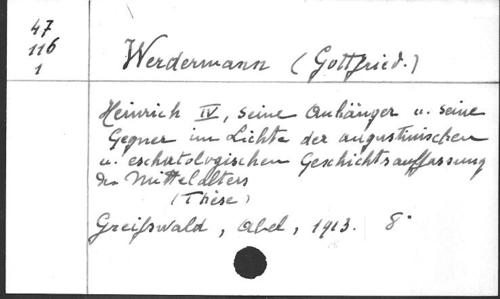 47
116
1
Werdermann (Gottfried.)
Heinrich IV, seine Anhänger u. seine
Gegner im Lichte der augustinischen
u. eschatologischen Geschichtsauffassung
des Mittelalters
(Thèse)
Greifswald, Abel, 1913. 8°